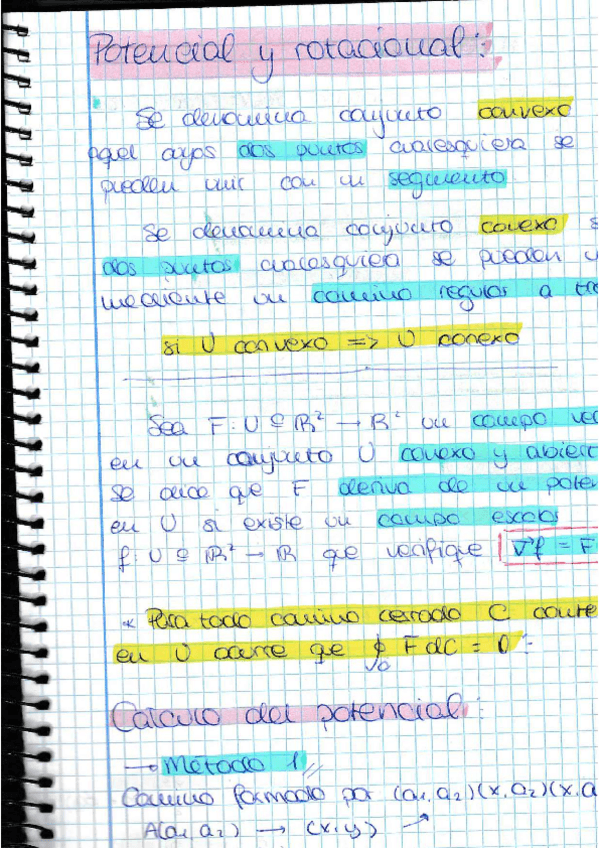 Potencial y rotacional:
Se denomina conjunto convexo
aquel cuyos dos puntos cualesquiera se
pueden unir con un segmento
Se denomina conjunto conexo s
dos puntos cualesquiera se pueden u
mediante un camino regular a tro
si U convexo => U conexo
Sea F: U ⊆ R² → R² un campo vec
en un conjunto U conexo y abiert
Se dice que F deriva de un poten
en U si existe un campo escalar
f: U ⊆ R² → R que verifique ∇f = F
* Para todo camino cerrado C conte
en U ocurre que ∮c F dC = 0:
Calculo del potencial:
→ Método 1//
Camino formado por (a₁, a₂)(x, a₂)(x, a
A(a₁, a₂) → (x, y) →